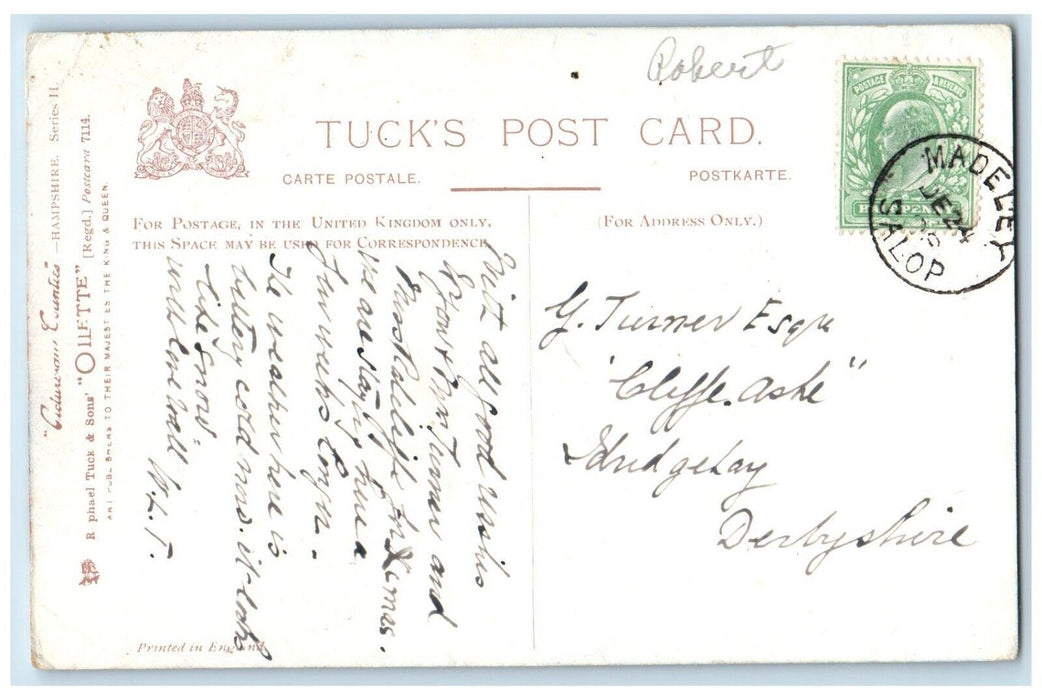 Robert
TUCK'S POST CARD.
CARTE POSTALE.
POSTKARTE.
FOR POSTAGE, IN THE UNITED KINGDOM ONLY,
THIS SPACE MAY BE USED FOR CORRESPONDENCE
(FOR ADDRESS ONLY.)
POSTAGE & REVENUE
HALFPENNY
MADELEY
DE 24
SALOP
G. Turner Esqre
"Cliffe. Ashe"
Idridgehay
Derbyshire
With all good wishes
to you & Mrs Turner and
Miss Radcliffe for Xmas.
We are staying here a
few weeks longer.
The weather here is
bitterly cold now. it looks
like snow.
with love to all
W. L. T.
"Picturesque Counties" —HAMPSHIRE. Series II.
R phael Tuck & Sons' "OILETTE" [Regd.] Postcard 7114.
ART PUBLISHERS TO THEIR MAJESTIES THE KING & QUEEN.
Printed in England